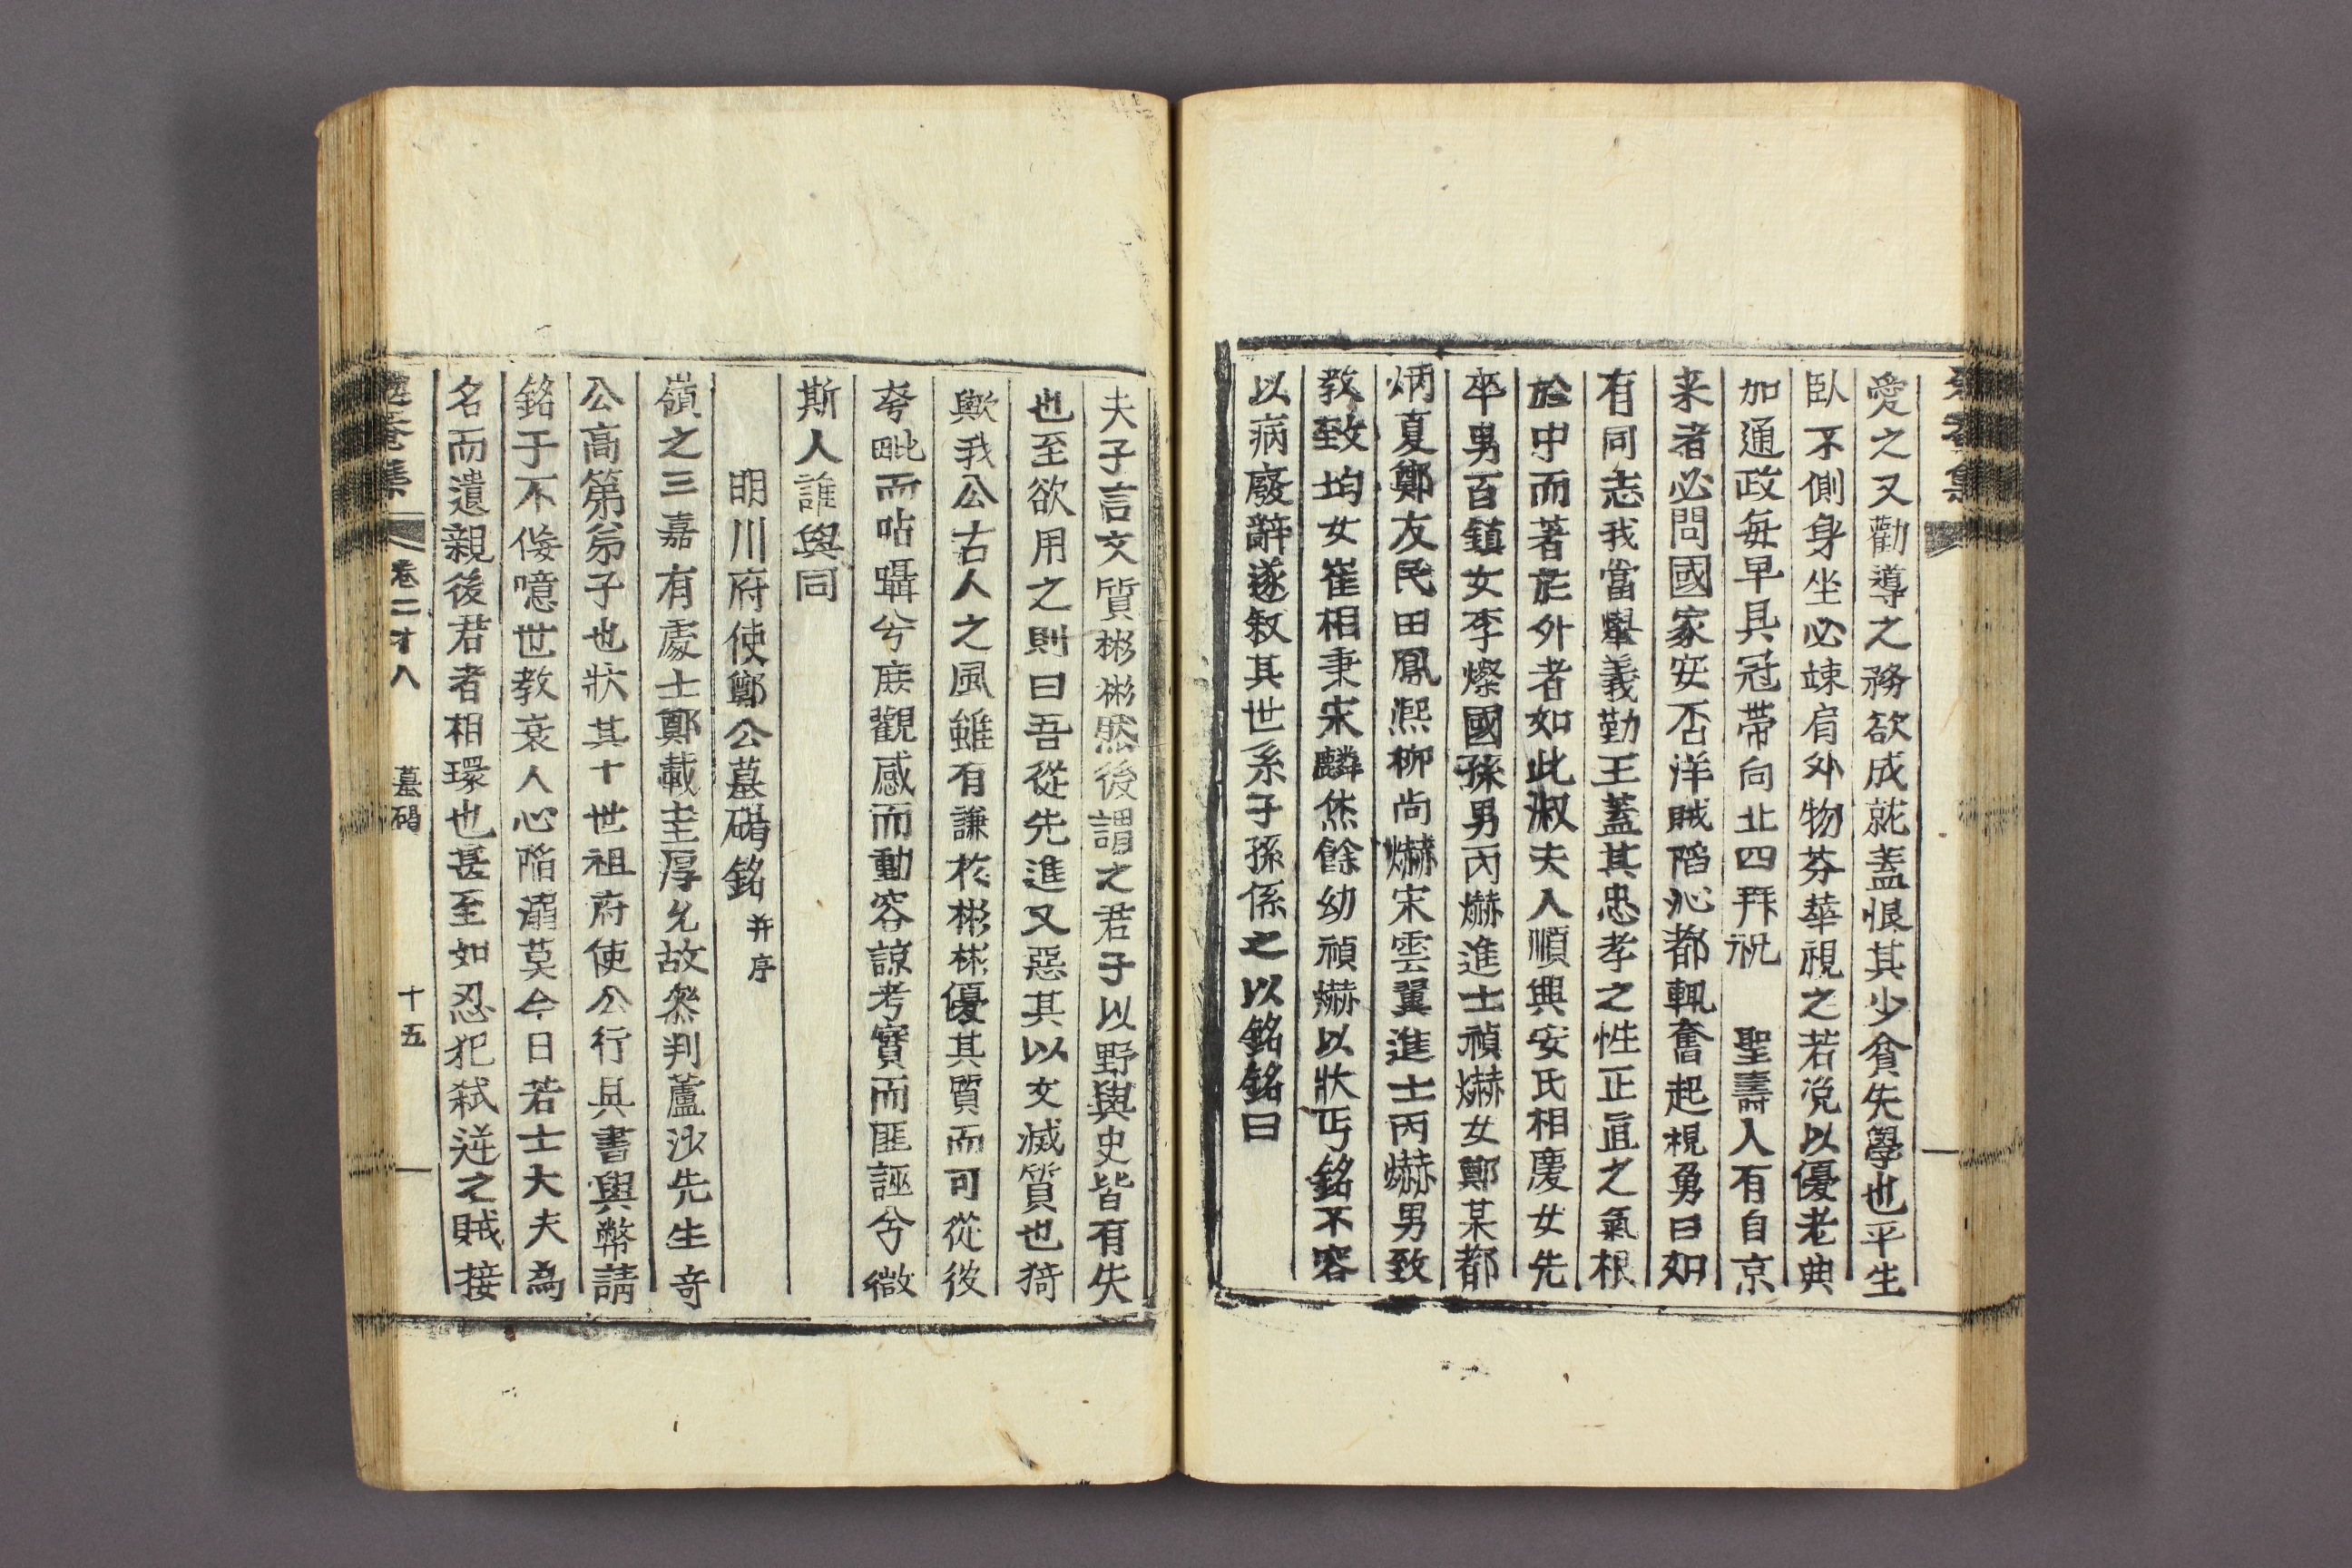 愛之又勸導之務欲成就盖恨其少貧失學也平生
臥不側身坐必竦肩外物芬華視之若凂以優老典
加通政每早具冠帶向北四拜祝 聖壽人有自京
来者必問國家安否洋賊陷沁都輒奮起視勇曰如
有同志我當擧義勤王蓋其忠孝之性正直之氣根
於中而著於外者如此淑夫人順興安氏相慶女先
卒男百鎮女李燦國孫男丙爀進士禎爀女鄭某都
炳夏鄭友民田鳳熙柳尚爀宋雲翼進士丙爀男致
敎致均女崔相秉宋麟烋餘幼禎爀以狀丐銘不容
以病廢辭遂敍其世系子孫係之以銘銘曰
夫子言文質彬彬然後謂之君子以野與史皆有失
也至欲用之則曰吾從先進又惡其以文滅質也猗
歟我公古人之風雖有謙於彬彬優其質而可從彼
夸毗而呫囁兮庶觀感而動容諒考實而匪誣兮微
斯人誰與同
明川府使鄭公墓碣銘 并序
嶺之三嘉有處士鄭載圭厚允故叅判蘆沙先生奇
公高第弟子也狀其十世祖府使公行具書與幣請
銘于不侫噫世教衰人心陷溺莫今日若士大夫為
名而遺親後君者相環也甚至如忍犯弑逆之賊接
卷二十八 墓碣 十五